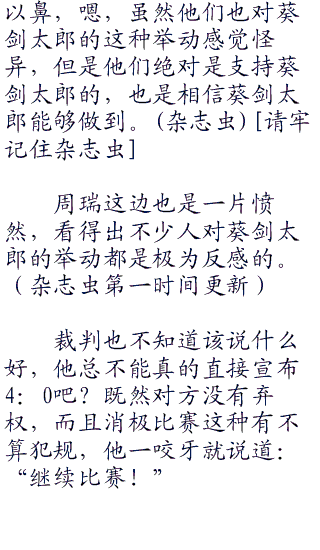 以鼻，嗯，虽然他们也对葵
剑太郎的这种举动感觉怪
异，但是他们绝对是支持葵
剑太郎的，也是相信葵剑太
郎能够做到。(杂志虫)[请牢
记住杂志虫]
周瑞这边也是一片愤
然，看得出不少人对葵剑太
郎的举动都是极为反感的。
（杂志虫第一时间更新）
裁判也不知道该说什么
好，他总不能真的直接宣布
4：0吧？既然对方没有弃
权，而且消极比赛这种有不
算犯规，他一咬牙就说道：
“继续比赛！”